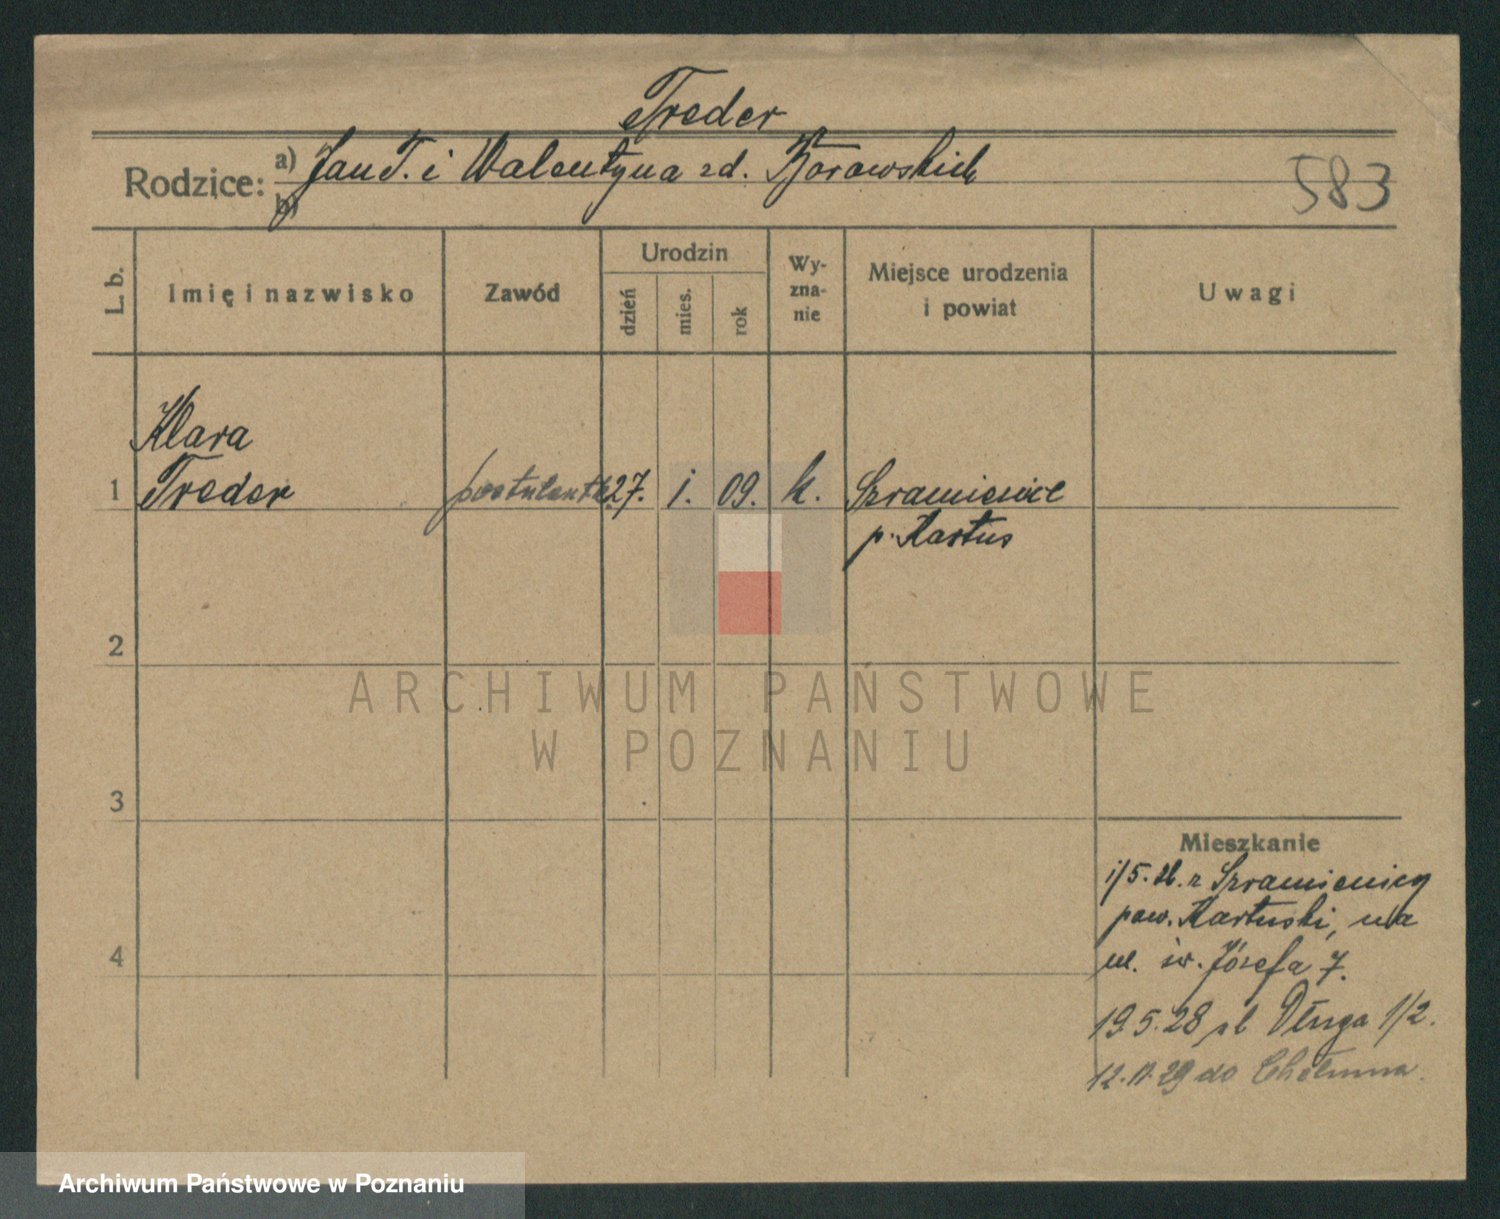 Treder
Rodzice: a) Jan T. i Walentyna zd. Borowskich
b)
583
L. b.
Imię i nazwisko
Zawód
Urodzin
dzień
mies.
rok
Wy-
zna-
nie
Miejsce urodzenia
i powiat
Uwagi
Klara
1 Treder postulantk 27. 1. 09. k. Szramienice
p. Kartus
2
ARCHIWUM PAŃSTWOWE
W POZNANIU
3
Mieszkanie
1/5. 28. z Szramienicy
pow. Kartuski, na
4
ul. św. Józefa 7.
19.5.28 Długa 1/2.
12. 11. 29 do Chełmna.
Archiwum Państwowe w Poznaniu